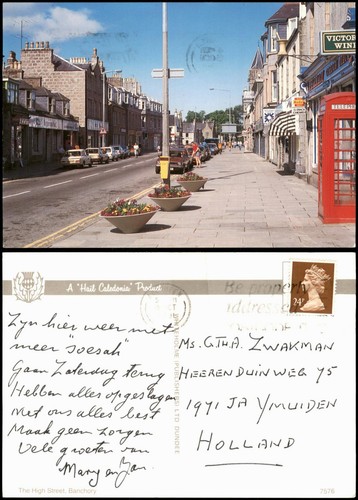 VICTOR
WIN
A "Hail Caledonia" Product
Be properly
addressed
24P
Zijn hier weer met
meer "Joesah"
Gaan Zaterdag terug
Hebben alles opgeslagen
Met ons alles best
Maak geen zorgen
Vele groeten van
Mary en Jan.
Ms. G.Th.A. ZWAKMAN
HEERENDUINWEG 75
1971 JA YMUIDEN
HOLLAND
WHITEHOLME (PUBLISHERS) LTD DUNDEE
The High Street, Banchory
7576